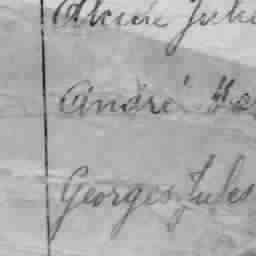 Alcide Jules
André
Georges Jules